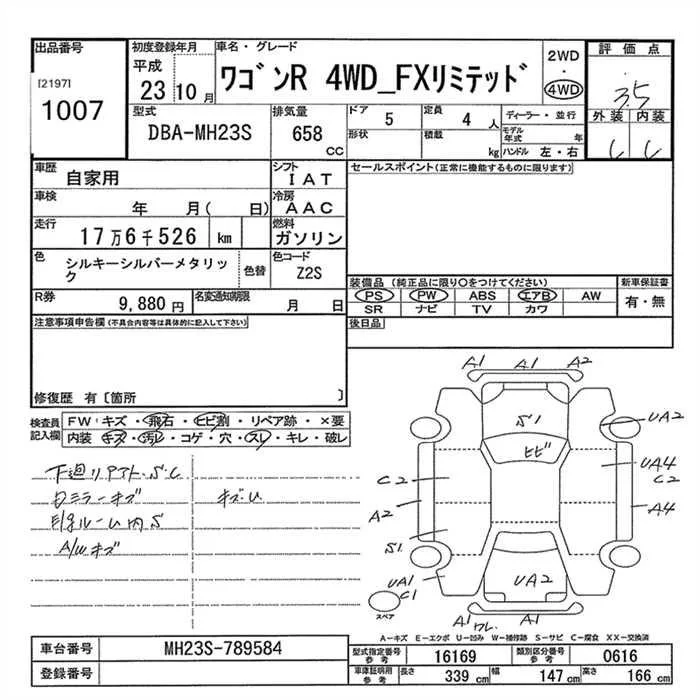 出品番号
[2197]
1007
初度登録年月
平成
23 10月
車名・グレード
ワゴンR 4WD_FXリミテッド
2WD
・
4WD
評価点
3.5
外装 内装
型式
DBA-MH23S
排気量
658
CC
ドア
5
定員
4 人
形状
積載
kg
ディーラー・並行
モデル年式 年
ハンドル 左・右
車歴
自家用
シフト
IAT
車検
年 月( 日)
冷房
AAC
走行
17万6千526 km
燃料
ガソリン
色
シルキーシルバーメタリック
色替
色コード
Z2S
R券
9,880 円
名変通知期限
月 日
セールスポイント(正常に機能するものに限ります)
装備品(純正品に限り○をつけてください)
PS PW ABS エアB AW
SR ナビ TV カワ
新車保証書
有・無
後日品
注意事項申告欄(不具合内容等は具体的に記入して下さい)
修復歴 有〔箇所 〕
検査員記入欄
FW:キズ・飛石・ヒビ割・リペア跡・×要
内装 キズ・汚レ・コゲ・穴・スレ・キレ・破レ
下廻リ
ミラーキズ
キズ.U
ルーム内S
A/Wキズ
A1 A1 A2
S1
ヒビ
UA2
C2
UA4
C2
A2
A4
S1
UA1
C1
UA2
A1 ワレ
A1
スペア
A-キズ E-エクボ U-凹み W-補修跡 S-サビ C-腐食 XX-交換済
車台番号
MH23S-789584
登録番号
型式指定番号参考
16169
類別区分番号参考
0616
車庫証明用参考
長さ 339 cm 幅 147 cm 高さ 166 cm